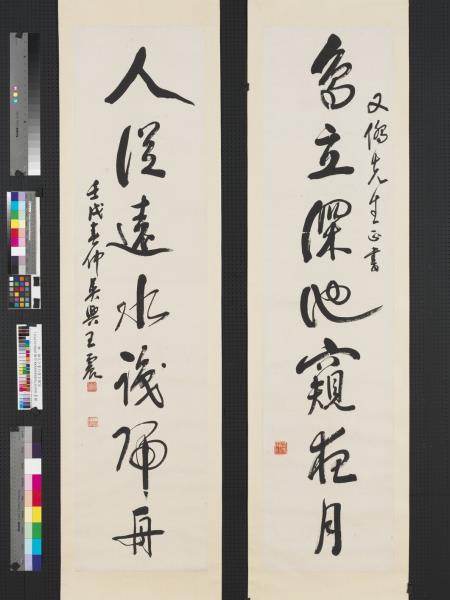 又先生正書
鳥立深池窺夜月
人從遠水識歸舟
壬戌春仲吳興王震